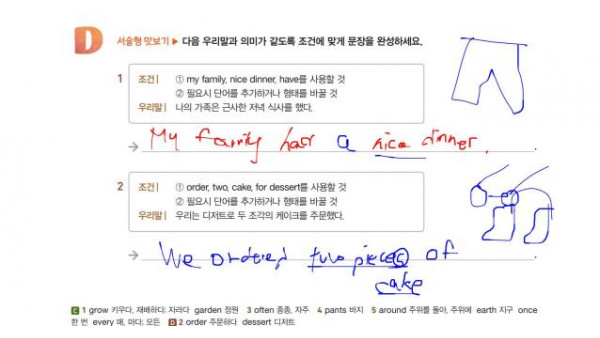 D 서술형 맛보기 ▶ 다음 우리말과 의미가 같도록 조건에 맞게 문장을 완성하세요.
1 조건 | ① my family, nice dinner, have를 사용할 것
② 필요시 단어를 추가하거나 형태를 바꿀 것
우리말 | 나의 가족은 근사한 저녁 식사를 했다.
→ My family had a nice dinner.
2 조건 | ① order, two, cake, for dessert를 사용할 것
② 필요시 단어를 추가하거나 형태를 바꿀 것
우리말 | 우리는 디저트로 두 조각의 케이크를 주문했다.
→ We ordered two pieces of
cake
C 1 grow 키우다, 재배하다; 자라다 garden 정원 3 often 종종, 자주 4 pants 바지 5 around 주위를 돌아, 주위에 earth 지구 once
한 번 every 매, 마다; 모든 D 2 order 주문하다 dessert 디저트